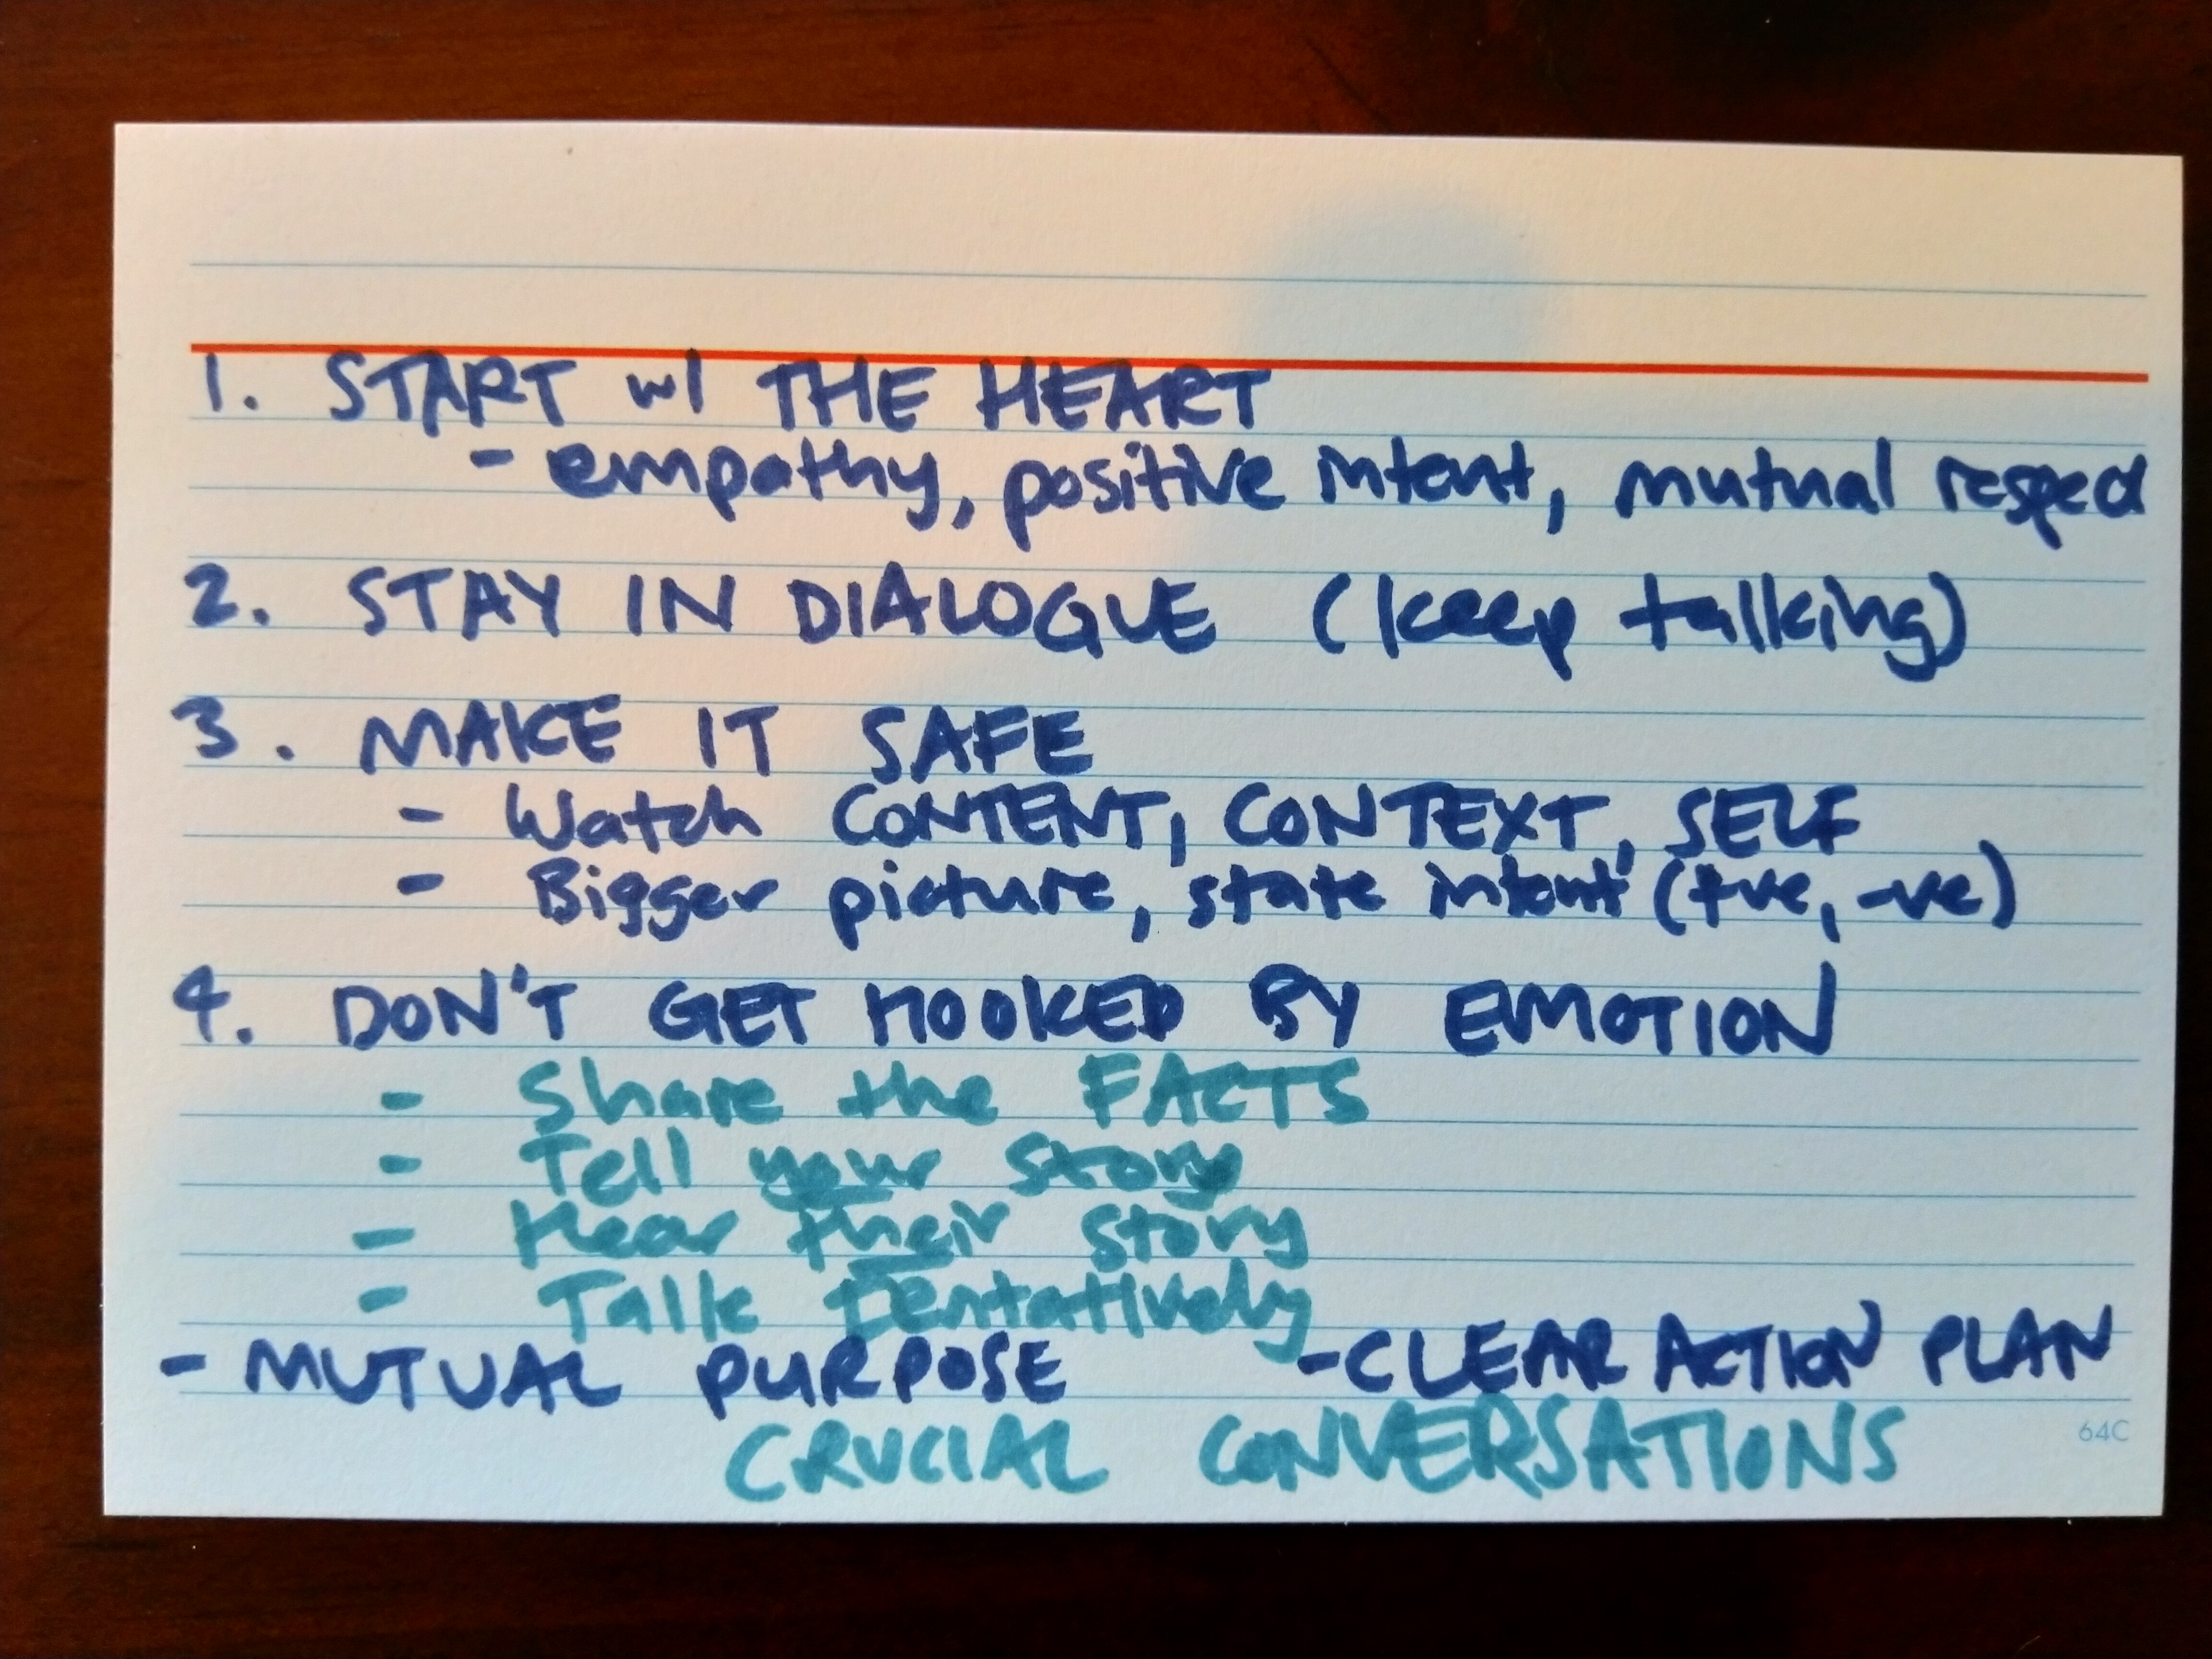 1. START w/ THE HEART
- empathy, positive intent, mutual respect
2. STAY IN DIALOGUE (keep talking)
3. MAKE IT SAFE
- Watch CONTENT, CONTEXT, SELF
- Bigger picture, state intent (+ve, -ve)
4. DON'T GET HOOKED BY EMOTION
- Share the FACTS
- Tell your story
- Hear their story
- Talk Tentatively
- MUTUAL PURPOSE - CLEAR ACTION PLAN
CRUCIAL CONVERSATIONS
64C